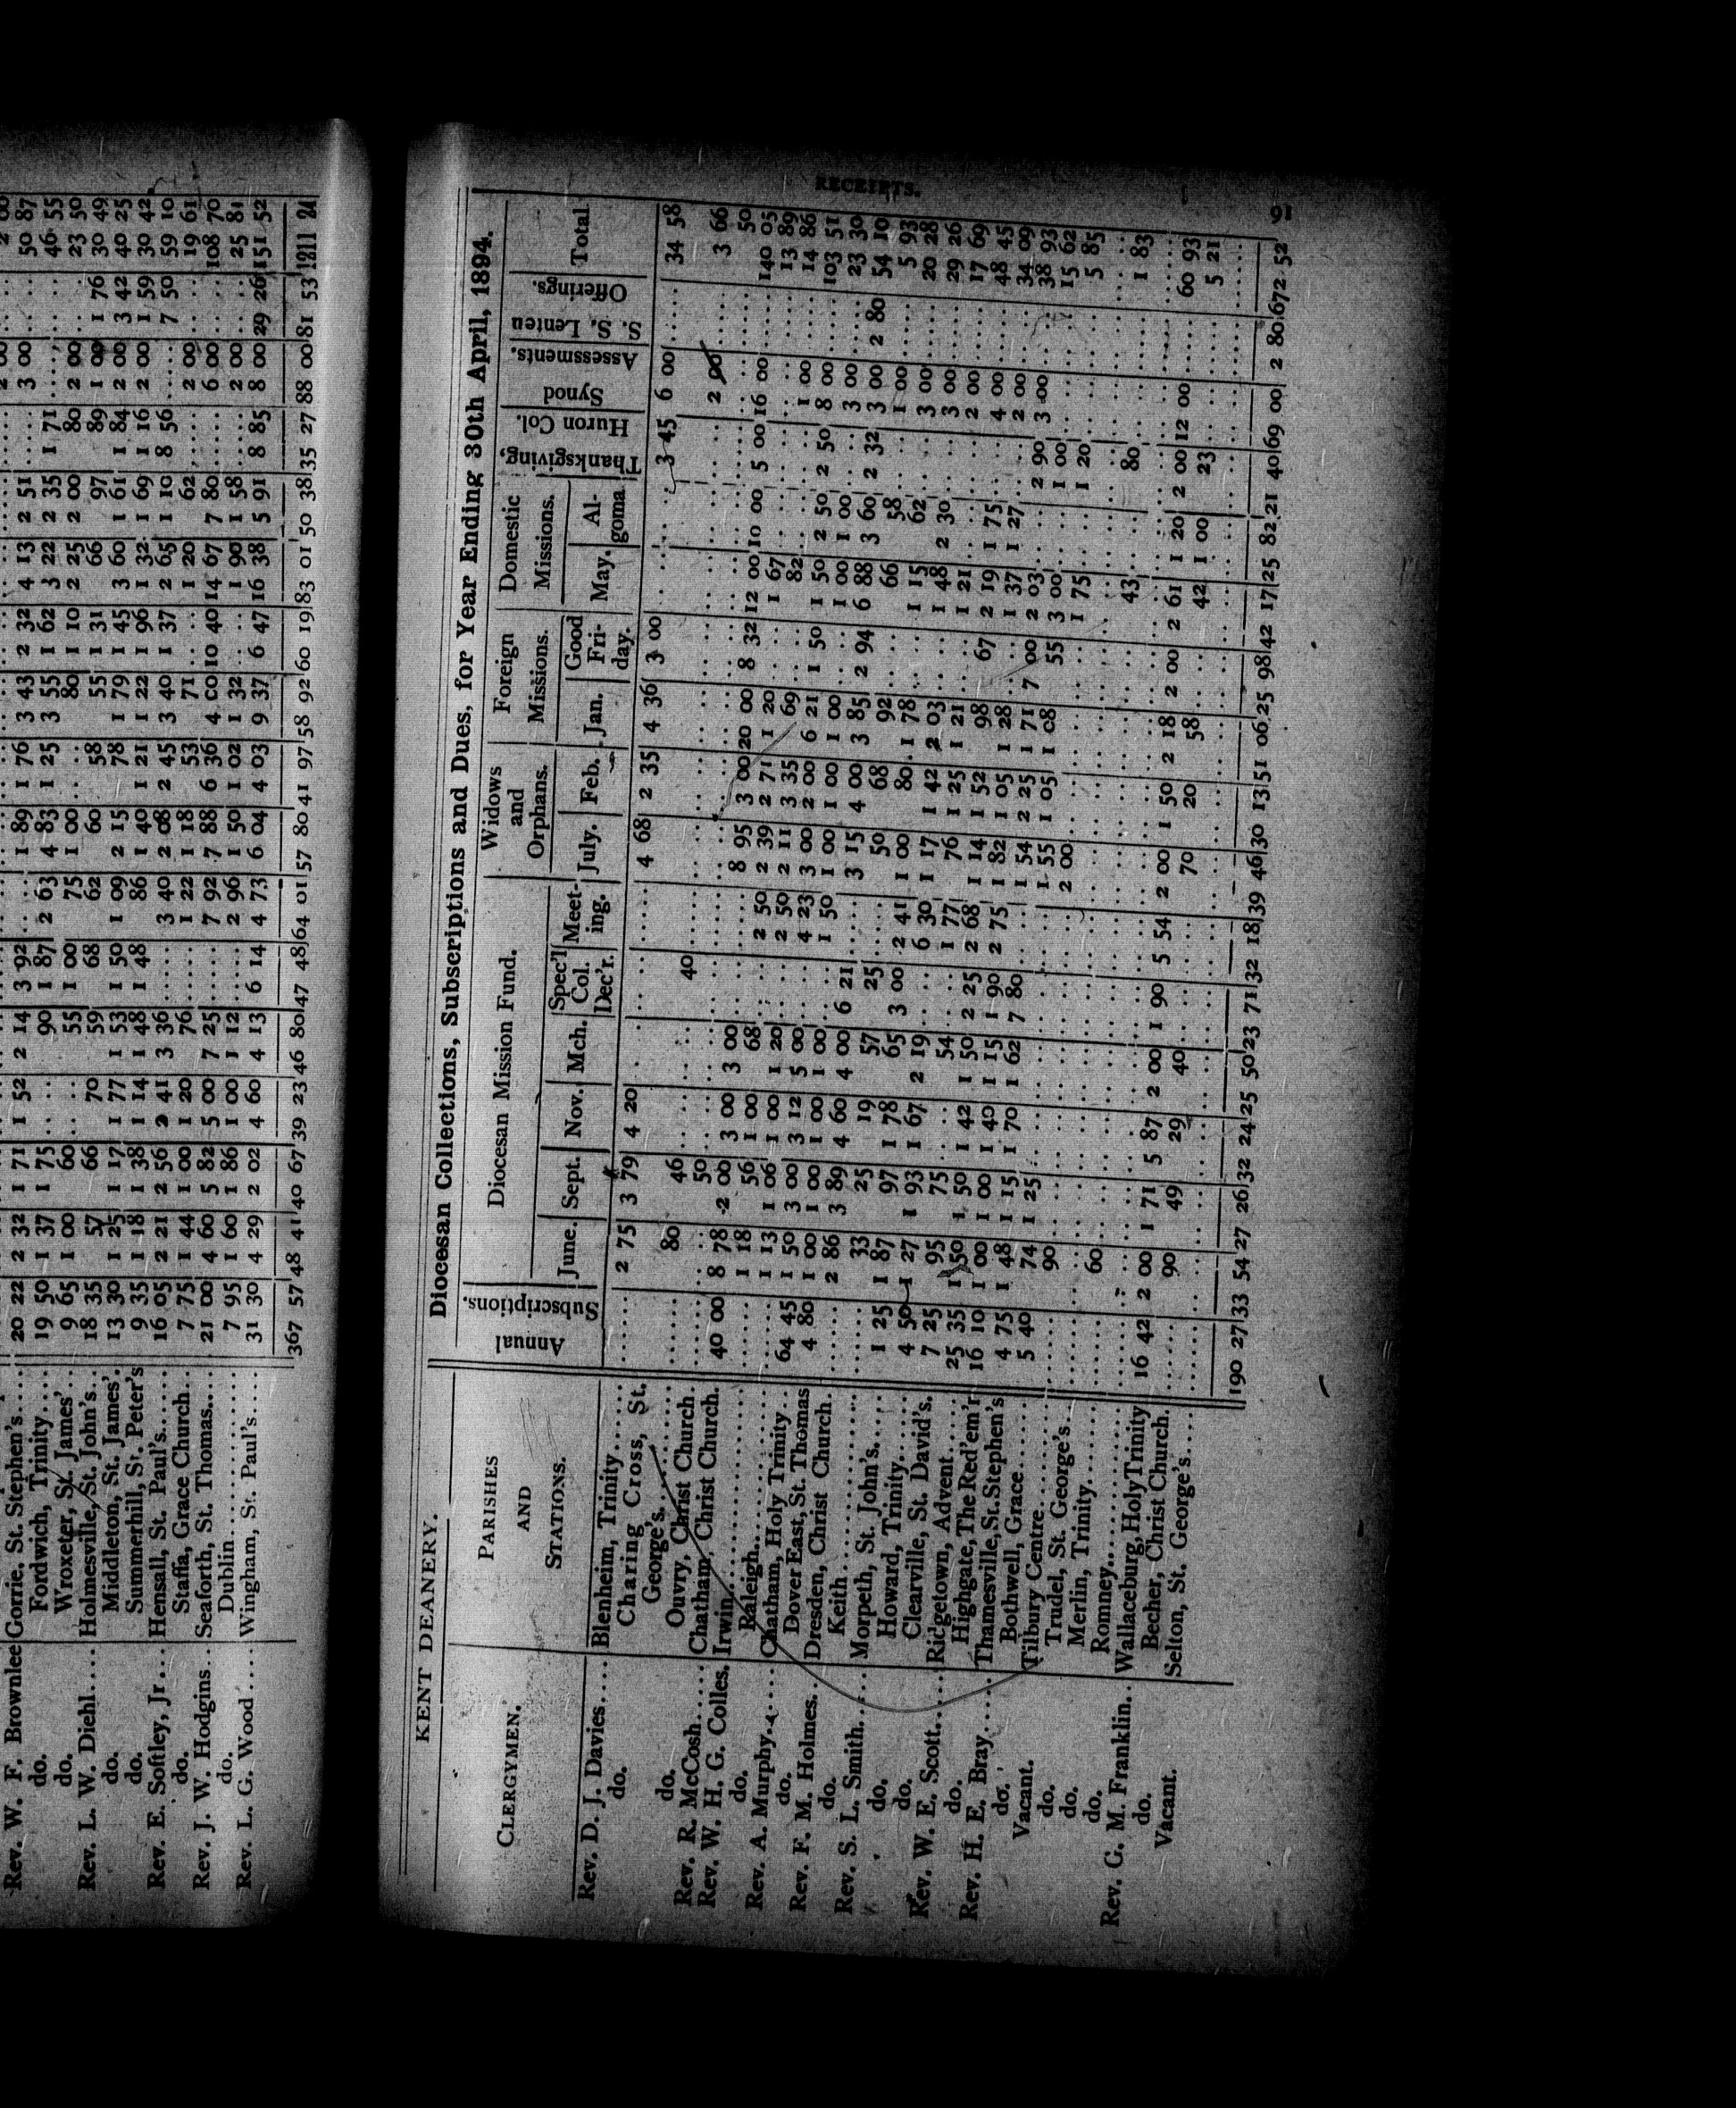 Rev. W. F. Brownlee Gorrie, St. Stephen's.... 20 22 2 32 1 71 1 52 2 14 3 92 .... 1 89 1 76 3 43 2 32 4 13 2 51 .... 3 00 .. 50 87
do. Fordwich, Trinity.... 19 50 1 37 1 75 .. 90 1 87 2 63 4 83 1 25 3 55 1 62 3 22 2 35 1 71 .... .. 46 55
do. Wroxeter, St. James' 9 65 1 00 60 .. 55 1 00 75 1 00 .. 80 1 10 2 25 2 00 80 2 00 .. 23 50
Rev. L. W. Diehl.... Holmesville, St. John's.. 18 35 57 66 70 59 68 62 60 58 55 1 31 66 97 89 1 00 1 76 30 49
do. Middleton, St. James'. 13 30 1 25 1 17 1 77 1 53 1 50 1 09 2 15 78 1 79 1 45 3 60 1 61 1 84 2 00 3 42 40 25
do. Summerhill, St. Peter's 9 35 1 18 1 38 1 14 1 48 1 48 86 1 40 1 21 1 22 1 96 1 32 1 69 1 16 2 00 1 59 30 42
Rev. E. Softley, Jr... Hensall, St. Paul's..... 16 05 2 21 2 56 2 41 3 36 .... 3 40 2 08 2 45 3 40 1 37 2 65 1 10 8 56 .... 7 50 59 10
do. Staffa, Grace Church... 7 75 1 44 1 00 1 20 76 .... 1 22 1 18 53 71 .. 1 20 62 .... 2 00 .. 19 61
Rev. J. W. Hodgins.. Seaforth, St. Thomas.... 21 00 4 60 5 82 5 00 7 25 .... 7 92 7 88 6 36 4 00 10 40 14 67 7 80 .... 6 00 .. 108 70
do. Dublin............ 7 95 1 60 1 86 1 00 1 12 .... 2 96 1 50 1 02 1 32 .. 1 90 1 58 .... 2 00 .. 25 81
Rev. L. G. Wood.... Wingham, St. Paul's.... 31 30 4 29 2 02 4 60 4 13 6 14 4 73 6 04 4 03 9 37 6 47 16 38 5 91 8 85 8 00 29 26 151 52
367 57 48 41 40 67 39 23 46 80 47 48 64 01 57 80 41 97 58 92 60 19 83 01 50 38 35 27 88 00 81 53 1211 24
RECEIPTS. 91
KENT DEANERY. Diocesan Collections, Subscriptions and Dues, for Year Ending 30th April, 1894.
CLERGYMEN. PARISHES AND STATIONS. Annual Subscriptions. Diocesan Mission Fund. Widows and Orphans. Foreign Missions. Domestic Missions. Thanksgiving, Huron Col. Synod Assessments. S. S. Lenten Offerings. Total
June. Sept. Nov. Mch. Spec'l Col. Dec'r. Meeting. July. Feb. Jan. Good Friday. May. Algoma
Rev. D. J. Davies.... Blenheim, Trinity...... ...... 2 75 3 79 4 20 .. .. .... 4 68 2 35 4 36 3 00 .. .. 3 45 6 00 .... 34 58
do. Charing Cross, St.
George's........ ...... 80 46 .. .. 40 .. .. .. .. .. .. .. .. 2 00 .... 3 66
do. Ouvry, Christ Church. ...... .. 50 .. .. .. .. .. .. .. .. .. .. .. .. .... 50
Rev. R. McCosh..... Chatham, Christ Church. 40 00 8 78 2 00 3 00 3 00 .. .. 8 95 3 00 20 00 8 32 12 00 10 00 5 00 16 00 .... 140 05
Rev. W. H. G. Colles. Irwin............ ...... 1 18 56 1 00 68 .. 2 50 2 39 2 71 1 20 .. 1 67 .. .. .. .... 13 89
do. Raleigh.......... ...... 1 13 1 06 1 00 1 20 .. 2 50 2 11 3 35 69 .. 82 .. .. 1 00 .... 14 86
Rev. A. Murphy..... Chatham, Holy Trinity.. 64 45 1 50 3 00 3 12 5 00 .. 4 23 3 00 2 00 6 21 1 50 1 50 2 50 2 50 8 00 .... 103 51
do. Dover East, St. Thomas 4 80 1 00 1 00 1 00 1 00 .. 1 50 1 00 1 00 1 00 .. 1 00 1 00 .. 3 00 .... 23 30
Rev. F. M. Holmes.. Dresden, Christ Church. ...... 2 86 3 89 4 60 4 00 6 21 .... 3 15 4 00 3 85 2 94 6 88 3 60 2 32 3 00 2 80 54 10
do. Keith............ ...... 33 25 19 57 25 .... 50 68 92 .. 66 58 .. 1 00 .... 5 93
Rev. S. L. Smith.... Morpeth, St. John's.... 1 25 1 87 97 1 78 65 3 00 2 41 1 00 80 1 78 .. 1 15 62 .. 3 00 .... 20 28
do. Howard, Trinity...... 4 50 1 27 1 93 1 67 2 19 .. 6 30 1 17 1 42 2 03 .. 1 48 2 30 .. 3 00 .... 29 26
do. Clearville, St. David's. 7 25 95 75 .. 54 .. 1 77 76 1 25 1 21 .. 1 21 .. .. 2 00 .... 17 69
Rev. W. E. Scott.... Ridgetown, Advent.... 25 35 1 50 1 50 1 42 1 50 2 25 2 68 1 14 1 52 98 67 2 19 1 75 .. 4 00 .... 48 45
do. Highgate, The Red'em'r 16 10 1 00 1 00 1 40 1 15 1 90 2 75 1 82 1 05 1 28 .. 1 37 1 27 .. 2 00 .... 34 09
Rev. H. E. Bray..... Thamesville, St. Stephen's 4 75 1 48 1 15 1 70 1 62 7 80 .. 1 54 2 25 1 71 7 00 2 03 .. 2 90 3 00 .... 38 93
do. Bothwell, Grace...... 5 40 74 1 25 .. .. .. .. 1 55 1 05 1 08 55 3 00 .. 1 00 .. .... 15 62
Vacant. Tilbury Centre...... ...... 90 .. .. .. .. .. 2 00 .. .. .. 1 75 .. 1 20 .. .... 5 85
do. Trudel, St. George's.... ...... .. .. .. .. .. .. .. .. .. .. .. .. .. .. .... ....
do. Merlin, Trinity...... ...... 60 .. .. .. .. .. .. .. .. .. 43 .. 80 .. .... 1 83
do. Romney.......... ...... .. .. .. .. .. .. .. .. .. .. .. .. .. .. .... ....
Rev. G. M. Franklin.. Wallaceburg, Holy Trinity 16 42 2 00 1 71 5 87 2 00 1 90 5 54 2 00 1 50 2 18 2 00 2 61 1 20 2 00 12 00 .... 60 93
do. Becher, Christ Church. ...... 90 49 29 40 .. .. 70 20 58 .. 42 1 00 23 .. .... 5 21
Vacant. Selton, St. George's.... ...... .. .. .. .. .. .. .. .. .. .. .. .. .. .. .... ....
190 27 33 54 27 26 32 24 25 50 23 71 32 18 39 46 30 13 51 06 25 98 42 17 25 82 21 40 69 00 2 80 672 52